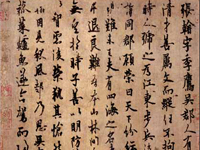 張翰字季鷹吳郡人有
清才善屬文而縱任不拘
時人號之為江東步兵後
謂同郡顧榮曰天下紛紜
禍難未已夫有四海之名
者求退良難吾本山林間
人無望於時子善以明防
前以智慮後榮執其手愴
然翰因見秋風起乃思吳
中菰菜鱸魚遂命駕而歸